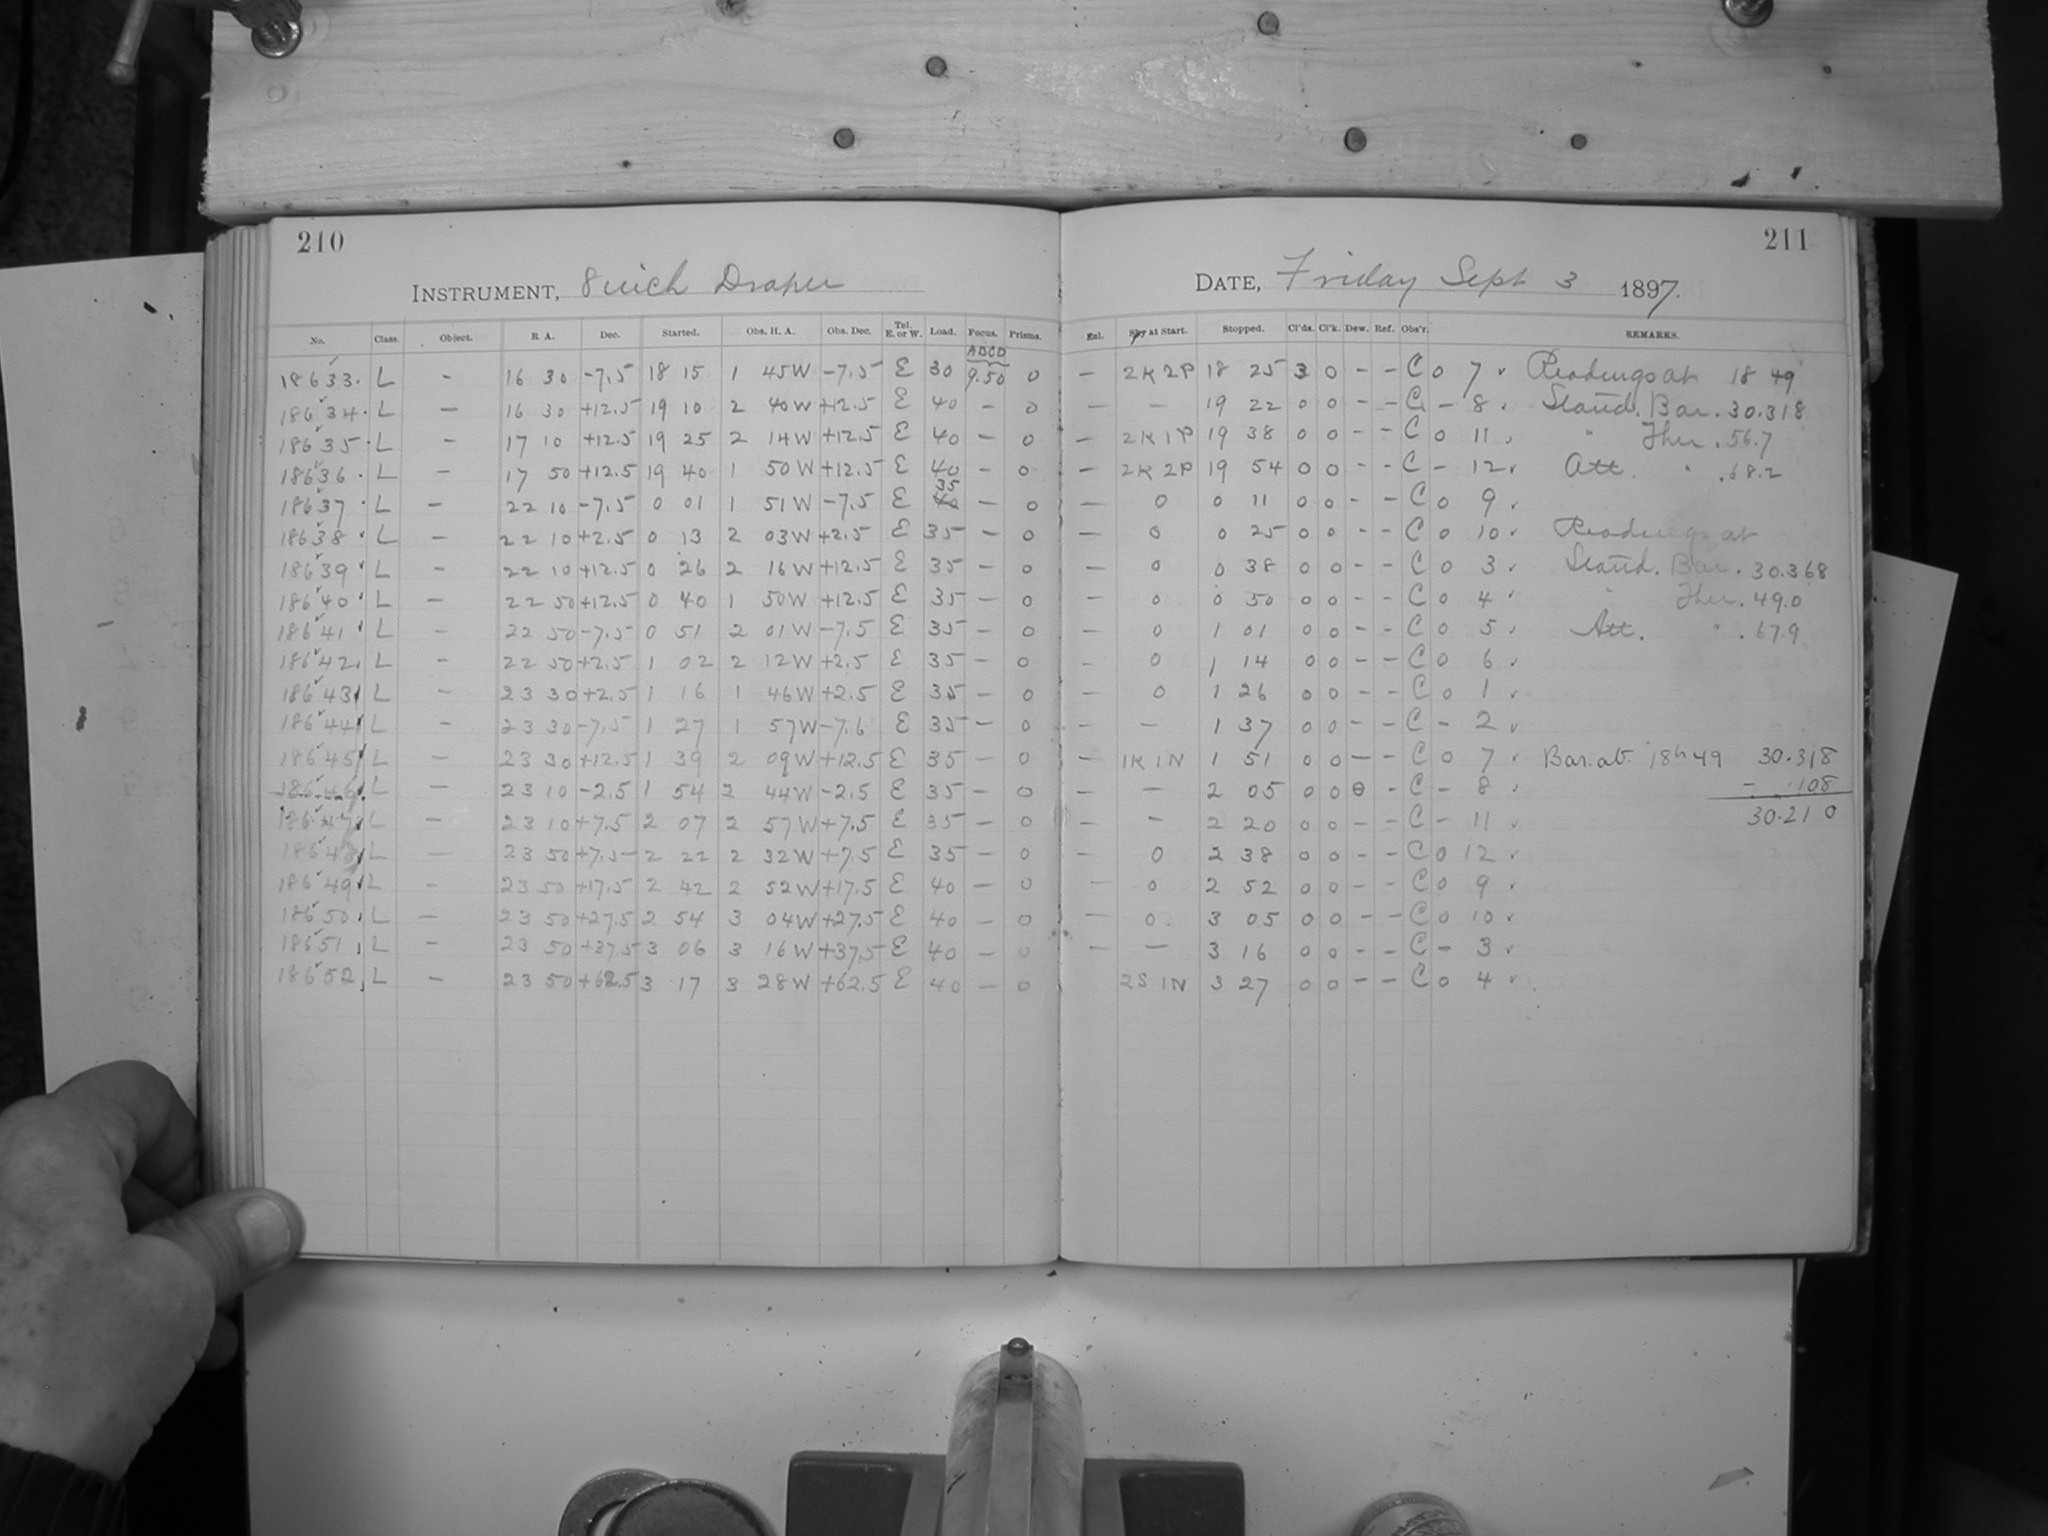 210
INSTRUMENT, 8 inch Draper
No. Class. Object. R. A. Dec. Started. Obs. H. A. Obs. Dec. Tel. E. or W. Load. Focus. Prisms.
ADCD
18633. L - 16 30 -7.5 18 15 1 45W -7.5 E 30 9.50 0
18634. L - 16 30 +12.5 19 10 2 40W +12.5 E 40 - 0
18635. L - 17 10 +12.5 19 25 2 14W +12.5 E 40 - 0
18636. L - 17 50 +12.5 19 40 1 50W +12.5 E 40 - 0
18637 . L - 22 10 -7.5 0 01 1 51W -7.5 E 35 - 0
18638 L - 22 10 +2.5 0 13 2 03W +2.5 E 35 - 0
18639 L - 22 10 +12.5 0 26 2 16W +12.5 E 35 - 0
18640 L - 22 50 +12.5 0 40 1 50W +12.5 E 35 - 0
18641 L - 22 50 -7.5 0 51 2 01W -7.5 E 35 - 0
18642. L - 22 50 +2.5 1 02 2 12W +2.5 E 35 - 0
18643 L - 23 30 +2.5 1 16 1 46W +2.5 E 35 - 0
18644 L - 23 30 -7.5 1 27 1 57W -7.6 E 35 - 0
18645 L - 23 30 +12.5 1 39 2 09W +12.5 E 35 - 0
18646 L - 23 10 -2.5 1 54 2 44W -2.5 E 35 - 0
18647 L - 23 10 +7.5 2 07 2 57W +7.5 E 35 - 0
18648 L - 23 50 +7.5 2 22 2 32W +7.5 E 35 - 0
18649 L - 23 50 +17.5 2 42 2 52W +17.5 E 40 - 0
18650 L - 23 50 +27.5 2 54 3 04W +27.5 E 40 - 0
18651 L - 23 50 +37.5 3 06 3 16W +37.5 E 40 - 0
18652 L - 23 50 +62.5 3 17 3 28W +62.5 E 40 - 0
211
DATE, Friday Sept 3 1897.
Enl. Sky at Start. Stopped. Cl'ds. Cl'k. Dew. Ref. Obs'r. REMARKS.
- 2K 2P 18 25 3 0 - - C 0 7 Readings at 18 49
- - 19 22 0 0 - - C - 8 Stand. Bar. 30.318
- 2K 1P 19 38 0 0 - - C 0 11 " Ther. 56.7
- 2K 2P 19 54 0 0 - - C - 12 Att. " .68.2
- 0 0 11 0 0 - - C 0 9
- 0 0 25 0 0 - - C 0 10 Readings at
- 0 0 38 0 0 - - C 0 3 Stand. Bar. 30.368
- 0 0 50 0 0 - - C 0 4 " Ther. 49.0
- 0 1 01 0 0 - - C 0 5 Att. " .67.9
- 0 1 14 0 0 - - C 0 6
- 0 1 26 0 0 - - C 0 1
- - 1 37 0 0 - - C - 2
- 1K 1N 1 51 0 0 - - C 0 7 Bar. at 18h 49 30.318
- - 2 05 0 0 0 - C - 8 - .108
- - 2 20 0 0 - - C - 11 30.210
- 0 2 38 0 0 - - C 0 12
- 0 2 52 0 0 - - C 0 9
- 0. 3 05 0 0 - - C 0 10
- - 3 16 0 0 - - C - 3
2S 1N 3 27 0 0 - - C 0 4